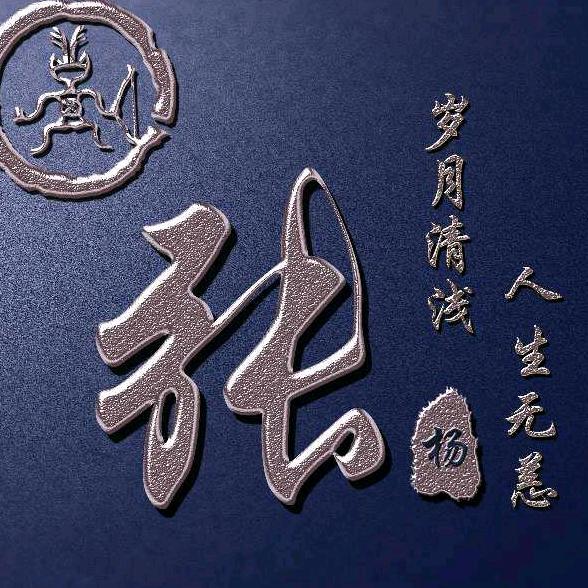 张
岁月清浅
人生无恙
杨